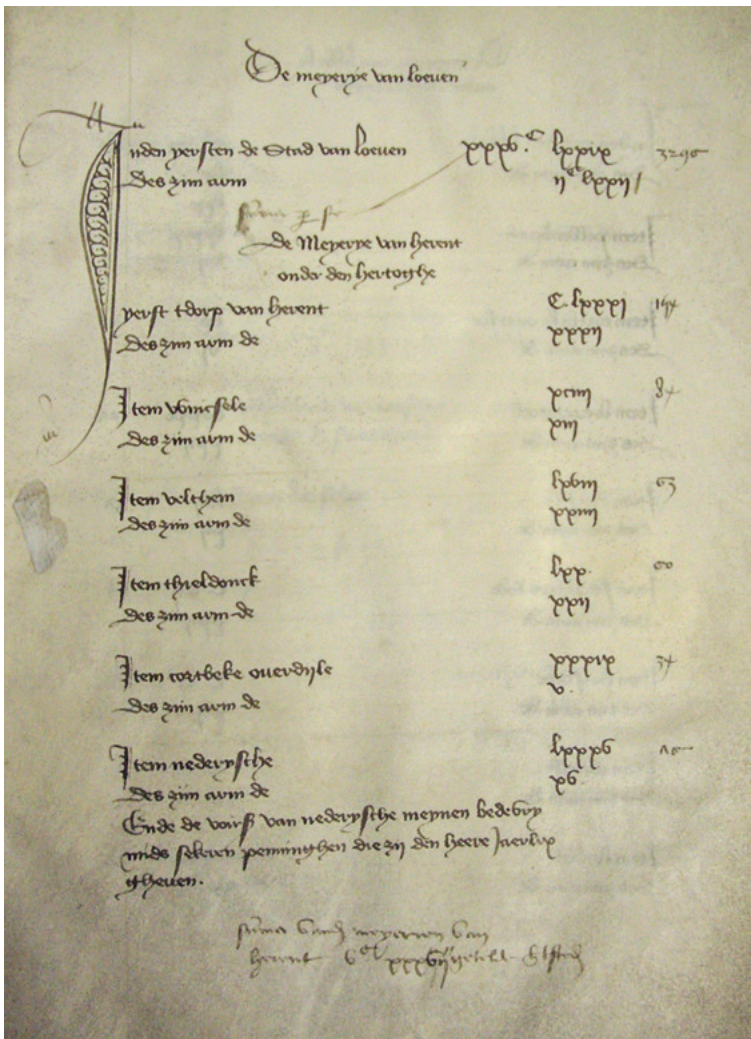 De meyerye van loeven
Inden yersten de Stad van loeven xxxv.C lxxix
Des zijn arm ijC lxxij
De Meyerye van herent
onder den hertoghe
yerst tdorp van herent C. lxxxj
Des zijn arm de xxxij
Item wincsele xciiij 84
Des zijn arm de xiij
Item velthem lxviij 63
Des zijn arm de xxiiij
Item thieldonck lxx. 60
Des zijn arm de xxij
Item cortbeke overdijle xxxix 34
Des zijn arm de v.
Item nederyssche lxxxv
Des zijn arm de xv.
Ende de voirs van nederyssche meynen bedevry
mids sekeren penninghen die zij den heere Jaerlix
gheven.
meyerien van
herent